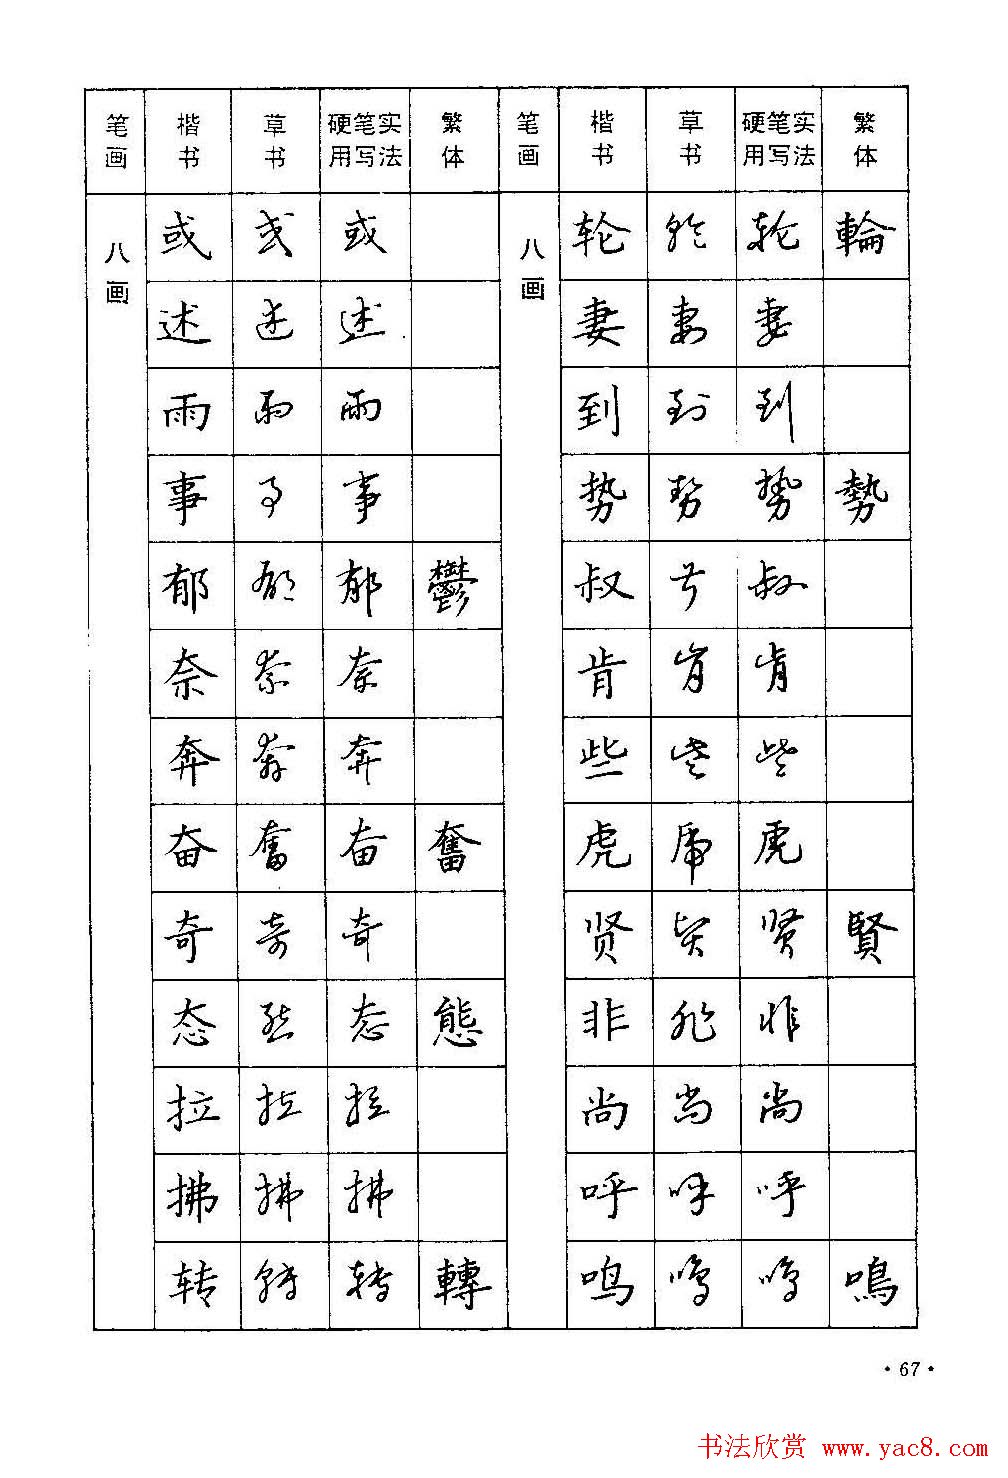 笔画 楷书 草书 硬笔实用写法 繁体 笔画 楷书 草书 硬笔实用写法 繁体
八画
或 或 或
述 述 述
雨 雨 雨
事 事 事
郁 郁 郁 鬱
奈 奈 奈
奔 奔 奔
奋 奮 奋 奮
奇 奇 奇
态 态 态 態
拉 拉 拉
拂 拂 拂
转 转 转 轉
八画
轮 轮 轮 輪
妻 妻 妻
到 到 到
势 势 势 勢
叔 叔 叔
肯 肯 肯
些 些 些
虎 虎 虎
贤 贤 贤 賢
非 非 非
尚 尚 尚
呼 呼 呼
鸣 鸣 鸣 鳴
·67·
书法欣赏 www.yac8.com